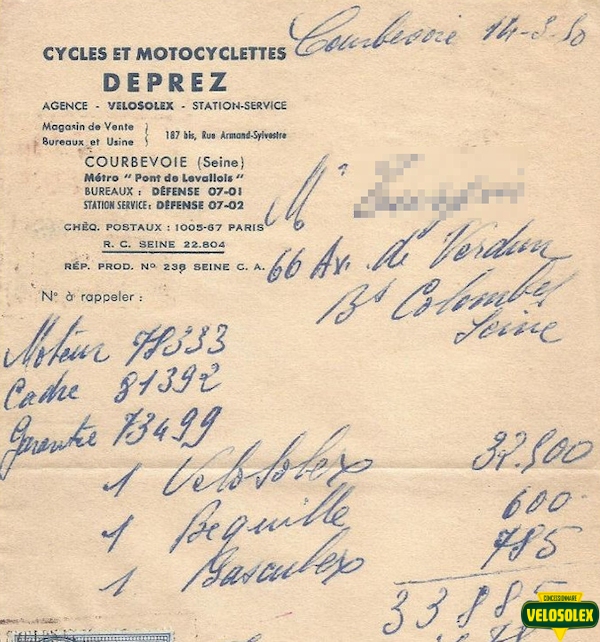 Courbevoie 14-3-50
CYCLES ET MOTOCYCLETTES
DEPREZ
AGENCE - VELOSOLEX - STATION-SERVICE
Magasin de Vente
Bureaux et Usine
187 bis, Rue Armand-Sylvestre
COURBEVOIE (Seine)
Métro "Pont de Levallois"
BUREAUX : DÉFENSE 07-01
STATION SERVICE : DÉFENSE 07-02
CHÈQ. POSTAUX : 1005-67 PARIS
R. C. SEINE 22.804
RÉP. PROD. No 238 SEINE C. A.
Mr
66 Av. de Verdun
Bs Colombes
Seine
No à rappeler :
Moteur 78333
Cadre 81392
Garantie 73499
1 Velosolex 32.500
1 Bequille 600
1 Gasculex 785
33885
CONCESSIONNAIRE
VELOSOLEX